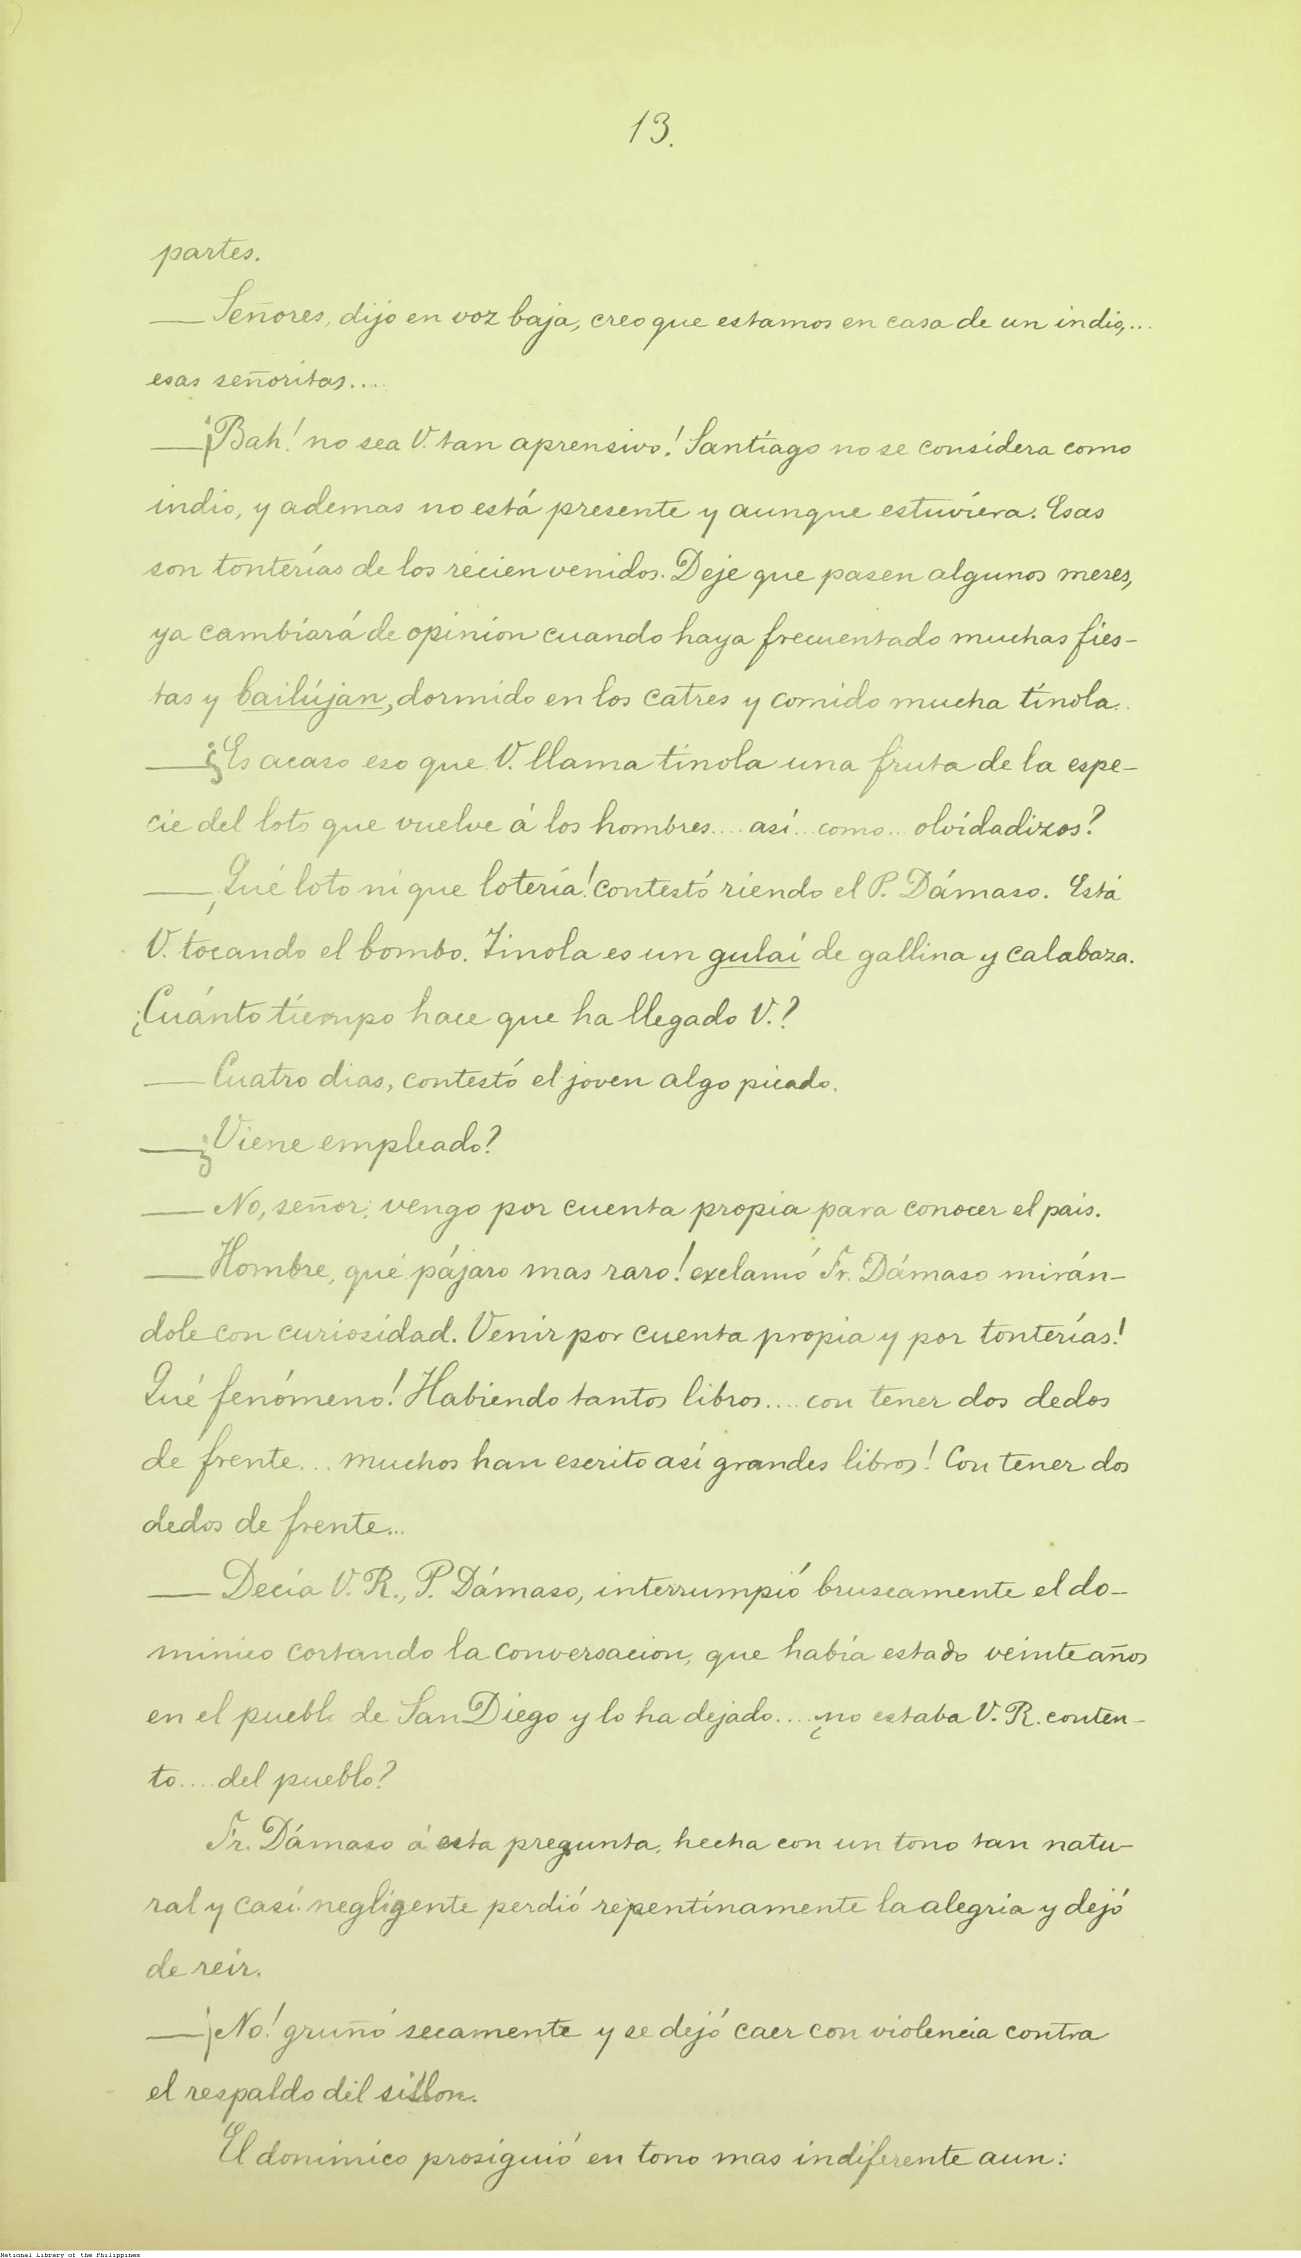 13.
partes.
— Señores, dijo en voz baja, creo que estamos en casa de un indio,...
esas señoritas....
— ¡Bah! no sea V. tan aprensivo! Santiago no se considera como
indio, y ademas no está presente y aunque estuviera. Esas
son tonterías de los recien venidos. Deje que pasen algunos meses,
ya cambiará de opinion cuando haya frecuentado muchas fies-
tas y bailújan, dormido en los catres y comido mucha tinola..
— ¿Es acaso eso que V. llama tinola una fruta de la espe-
cie del loto que vuelve á los hombres.... así... como.. olvidadizos?
— ¡Qué loto ni que lotería! contestó riendo el P. Dámaso. Está
V. tocando el bombo. Tinola es un gulai de gallina y calabaza.
¿Cuánto tiempo hace que ha llegado V.?
— Cuatro dias, contestó el joven algo picado.
— ¿Viene empleado?
— No, señor; vengo por cuenta propia para conocer el pais.
— Hombre, qué pájaro mas raro! exclamó Fr. Dámaso mirán-
dole con curiosidad. Venir por cuenta propia y por tonterías!
Qué fenómeno! Habiendo tantos libros.... con tener dos dedos
de frente... muchos han escrito así grandes libros! Con tener dos
dedos de frente...
— Decía V. R., P. Dámaso, interrumpió bruscamente el do-
minico cortando la conversacion, que había estado veinte años
en el pueblo de San Diego y lo ha dejado.... ¿no estaba V. R. conten-
to.... del pueblo?
Fr. Dámaso á esta pregunta, hecha con un tono tan natu-
ral y casi negligente perdió repentinamente la alegría y dejó
de reir.
— ¡No! gruñó secamente y se dejó caer con violencia contra
el respaldo del sillon.
El dominico prosiguió en tono mas indiferente aun:
National Library of the Philippines